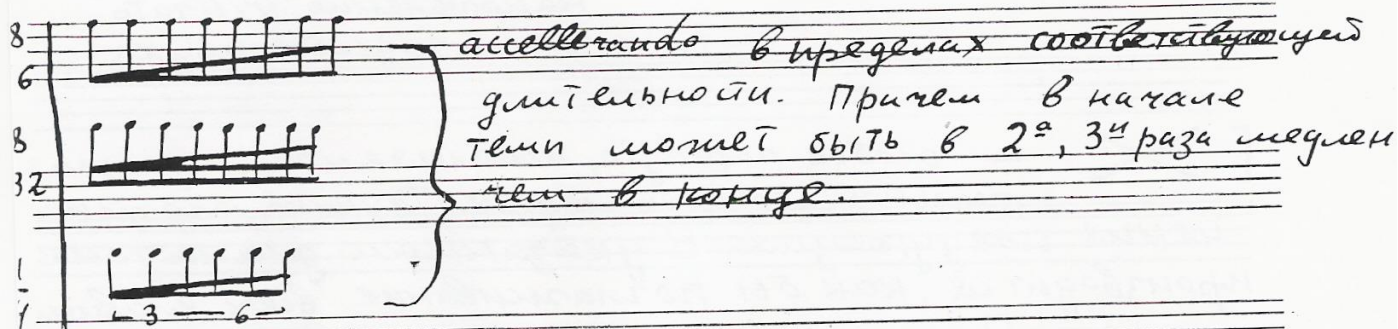 8
6
accellerando в пределах соответствующей
длительности. Причем в начале
8
32
темп может быть в 2ᵃ, 3ᵘ раза медлен
чем в конце.
3 6